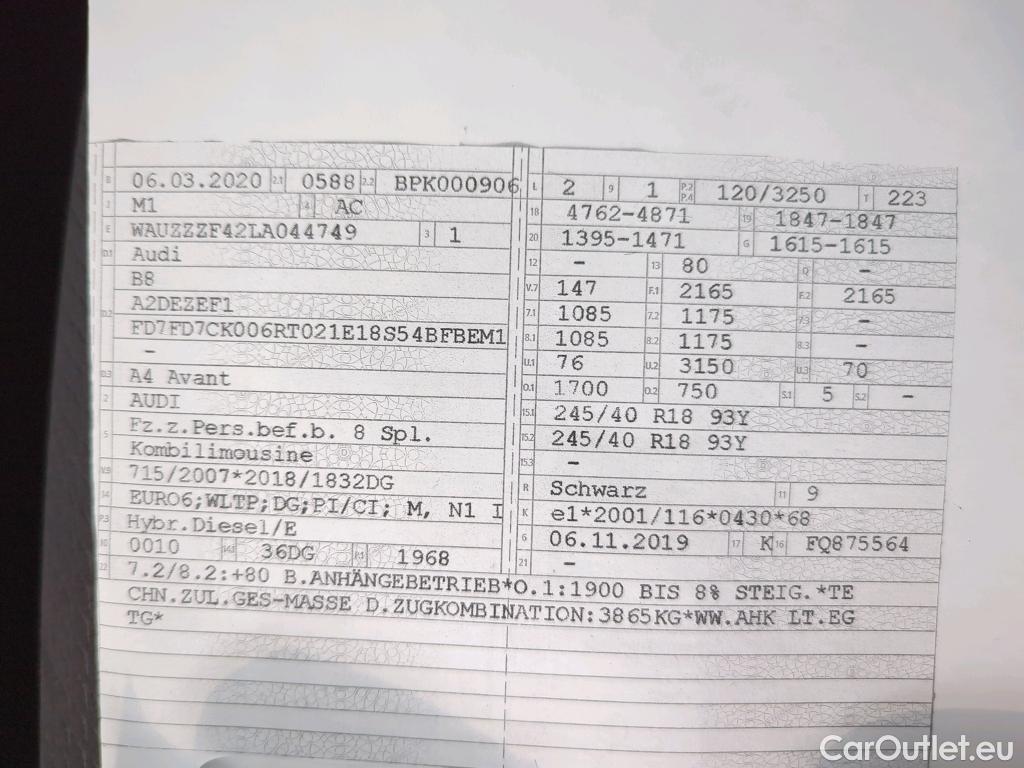 B 06.03.2020 2.1 0588 2.2 BPK000906
J M1 4 AC
E WAUZZZF42LA044749 3 1
D.1 Audi
B8
D.2 A2DEZEF1
FD7FD7CK006RT021E18S54BFBEM1
–
D.3 A4 Avant
2 AUDI
5 Fz.z.Pers.bef.b. 8 Spl.
Kombilimousine
V.9 715/2007*2018/1832DG
14 EURO6;WLTP;DG;PI/CI; M, N1 I
P.3 Hybr.Diesel/E
10 0010 14.1 36DG P.1 1968
L 2 9 1 P.2 P.4 120/3250 T 223
18 4762-4871 19 1847-1847
20 1395-1471 G 1615-1615
12 – 13 80 Q –
V.7 147 F.1 2165 F.2 2165
7.1 1085 7.2 1175 7.3 –
8.1 1085 8.2 1175 8.3 –
U.1 76 U.2 3150 U.3 70
O.1 1700 O.2 750 S.1 5 S.2 –
15.1 245/40 R18 93Y
15.2 245/40 R18 93Y
15.3 –
R Schwarz 11 9
K e1*2001/116*0430*68
6 06.11.2019 17 K 16 FQ875564
21 –
22 7.2/8.2:+80 B.ANHÄNGEBETRIEB*O.1:1900 BIS 8% STEIG.*TE
CHN.ZUL.GES-MASSE D.ZUGKOMBINATION:3865KG*WW.AHK LT.EG
TG*
CarOutlet.eu